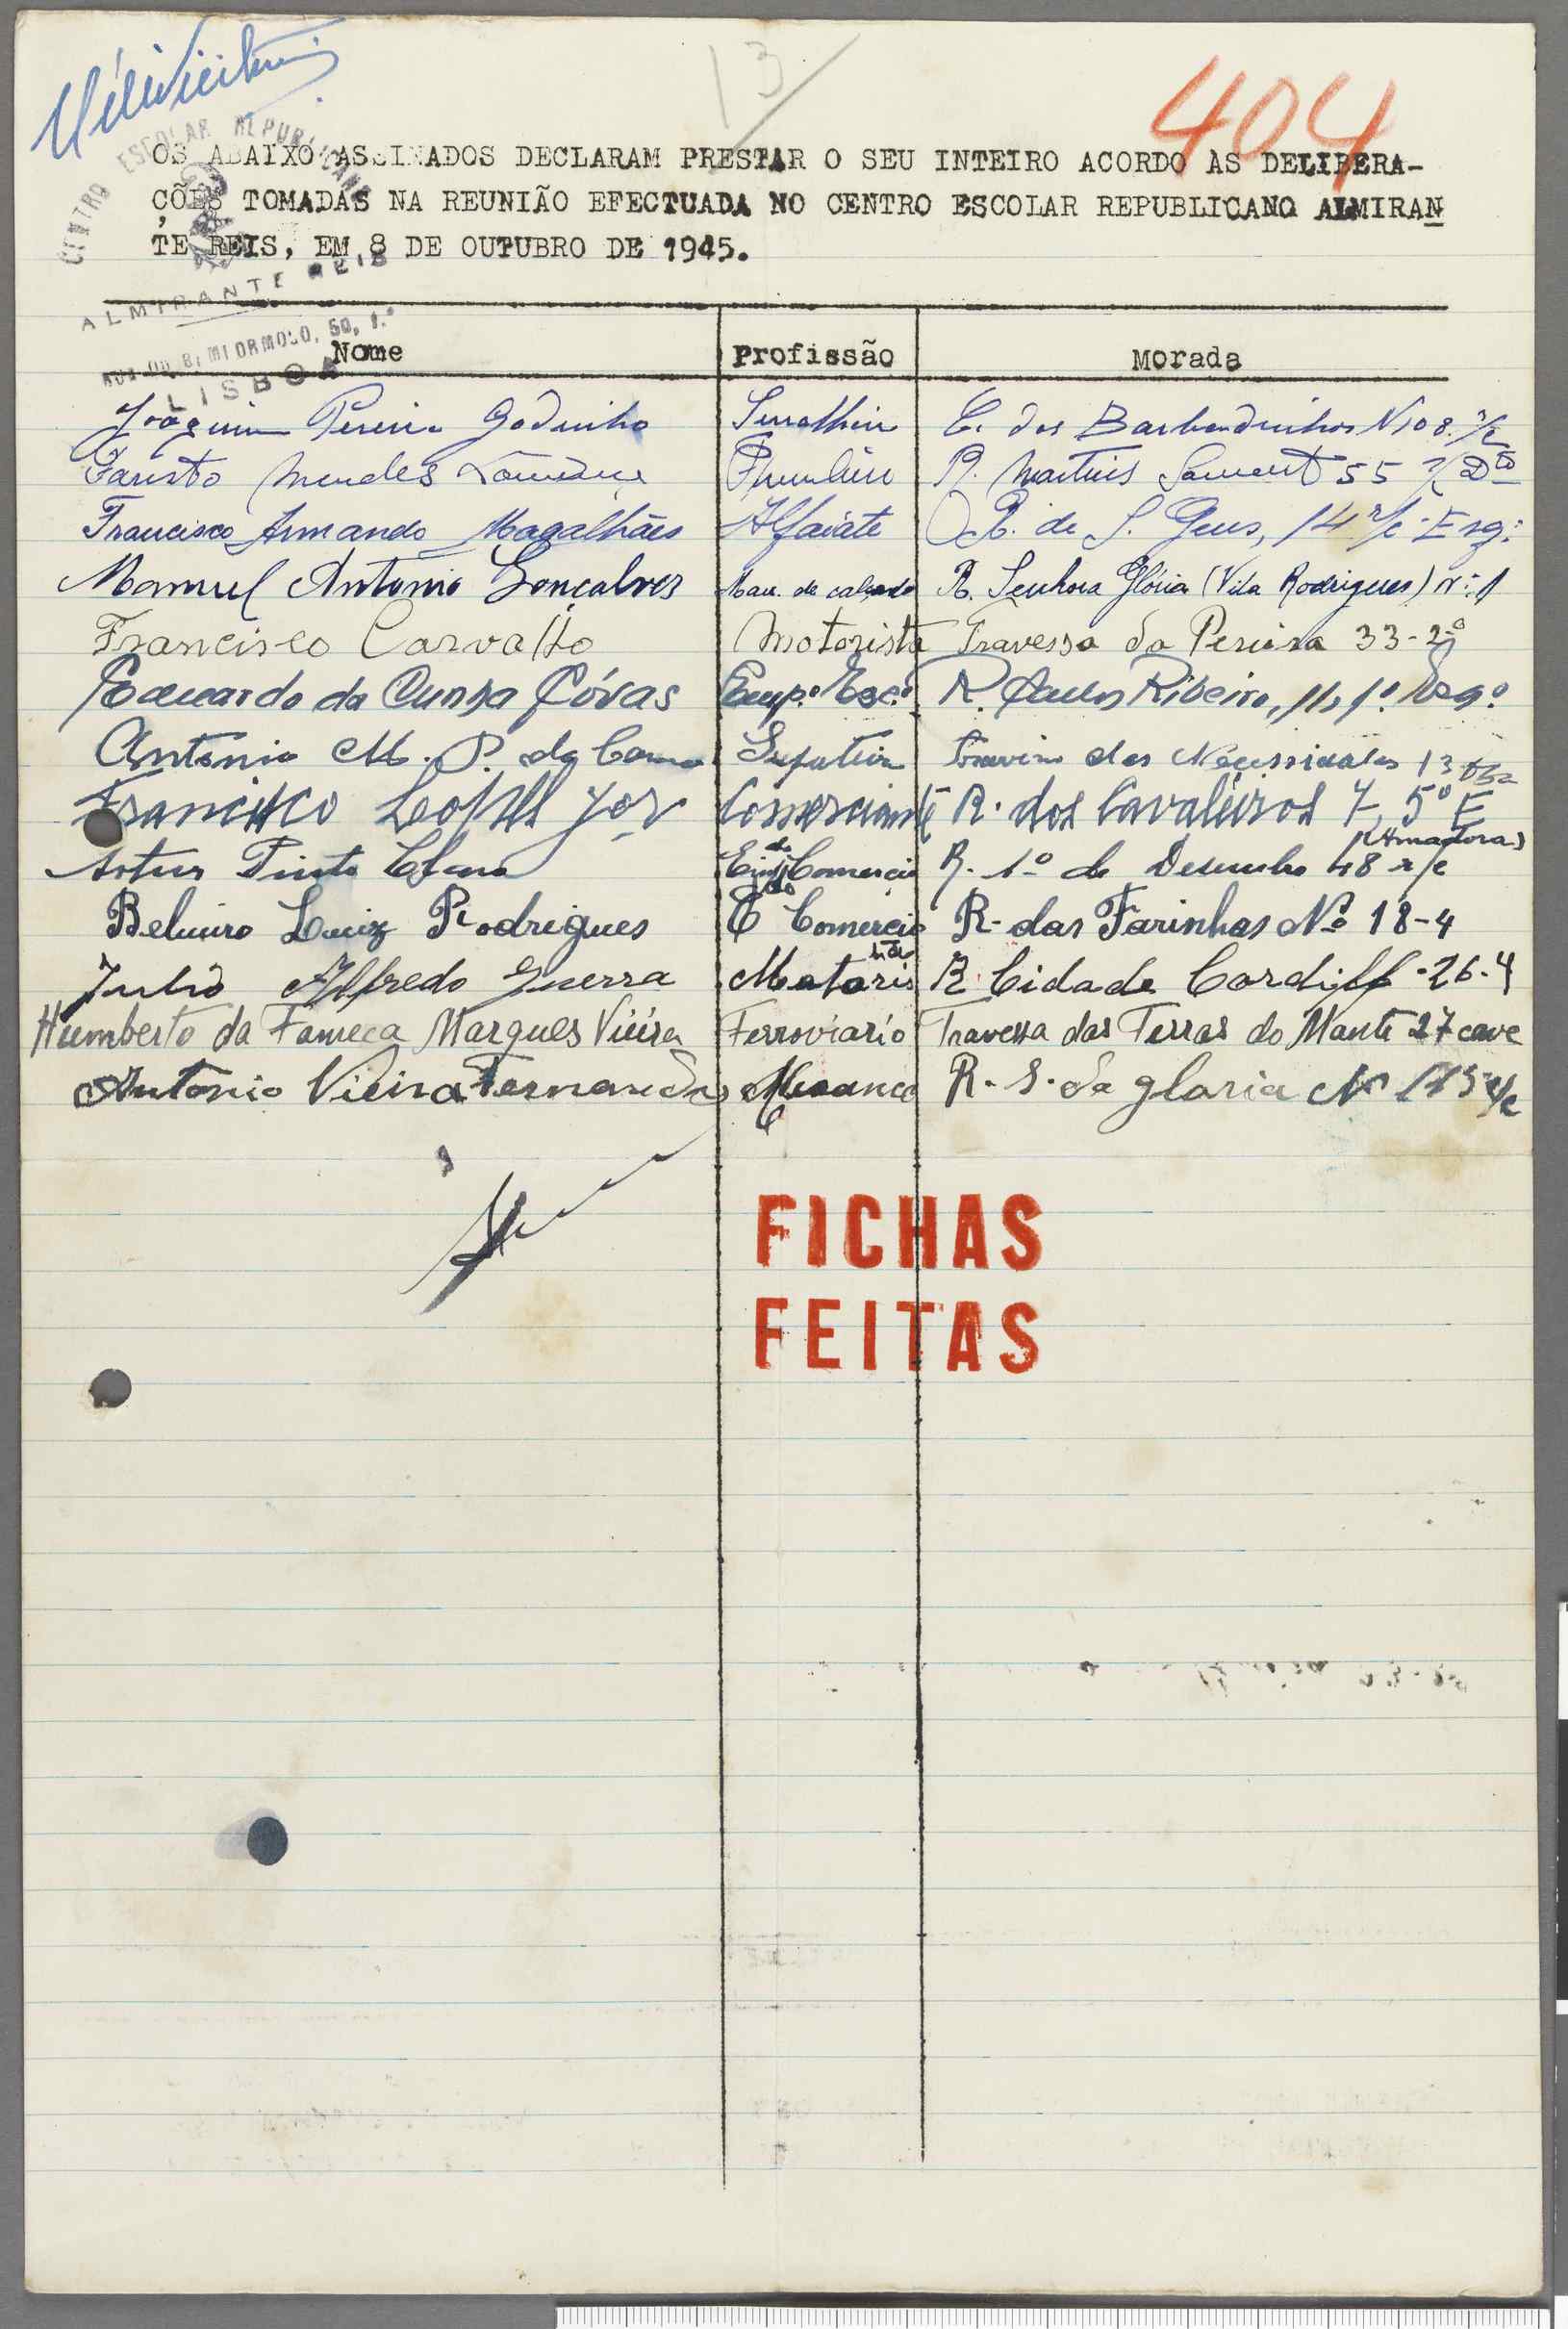 13
404
CENTRO ESCOLAR REPUBLICANO
ALMIRANTE REIS
LISBOA
OS ABAIXO ASSINADOS DECLARAM PRESTAR O SEU INTEIRO ACORDO ÀS DELIBERA-
ÇÕES TOMADAS NA REUNIÃO EFECTUADA NO CENTRO ESCOLAR REPUBLICANO ALMIRAN
TE REIS, EM 8 DE OUTUBRO DE 1945.
Nome Profissão Morada
Joaquim Pereira Godinho Serralheiro C. dos Barbadinhos N 108 r/c
Fausto Mendes R. Martins Sarment 55 r/c Dto
Francisco Armando Magalhães Alfaiate R. de S. Gens, 14 r/c Esq.
Manuel Antonio Gonçalves Man. de calçado R. Senhora Glória (Vila Rodrigues) nº 1
Francisco Carvalho Motorista Travessa da Pereira 33-2º
Eduardo da Cunha Cóvas Emp.º Esc.º R. Ribeiro, 11, 1º Esq.º
Antonio M. P. da Sapateiro Travessa das Necessidades 13
Francisco Lopes Jor Comerciante R. dos Cavaleiros 7, 5º E
Artur Pinto Emp. do Comercio R. 1º de Dezembro 48 r/c (Amadora)
Belmiro Luiz Rodrigues E do Comercio R. das Farinhas Nº 18-4
Julio Alfredo Guerra Motorista R. Cidade Cardiff-26-4
Humberto da Fonseca Marques Vieira Ferroviario Travessa das Terras do Monte 27 cave
Antonio Vieira Fernandes R. S. da gloria Nº r/c
FICHAS
FEITAS